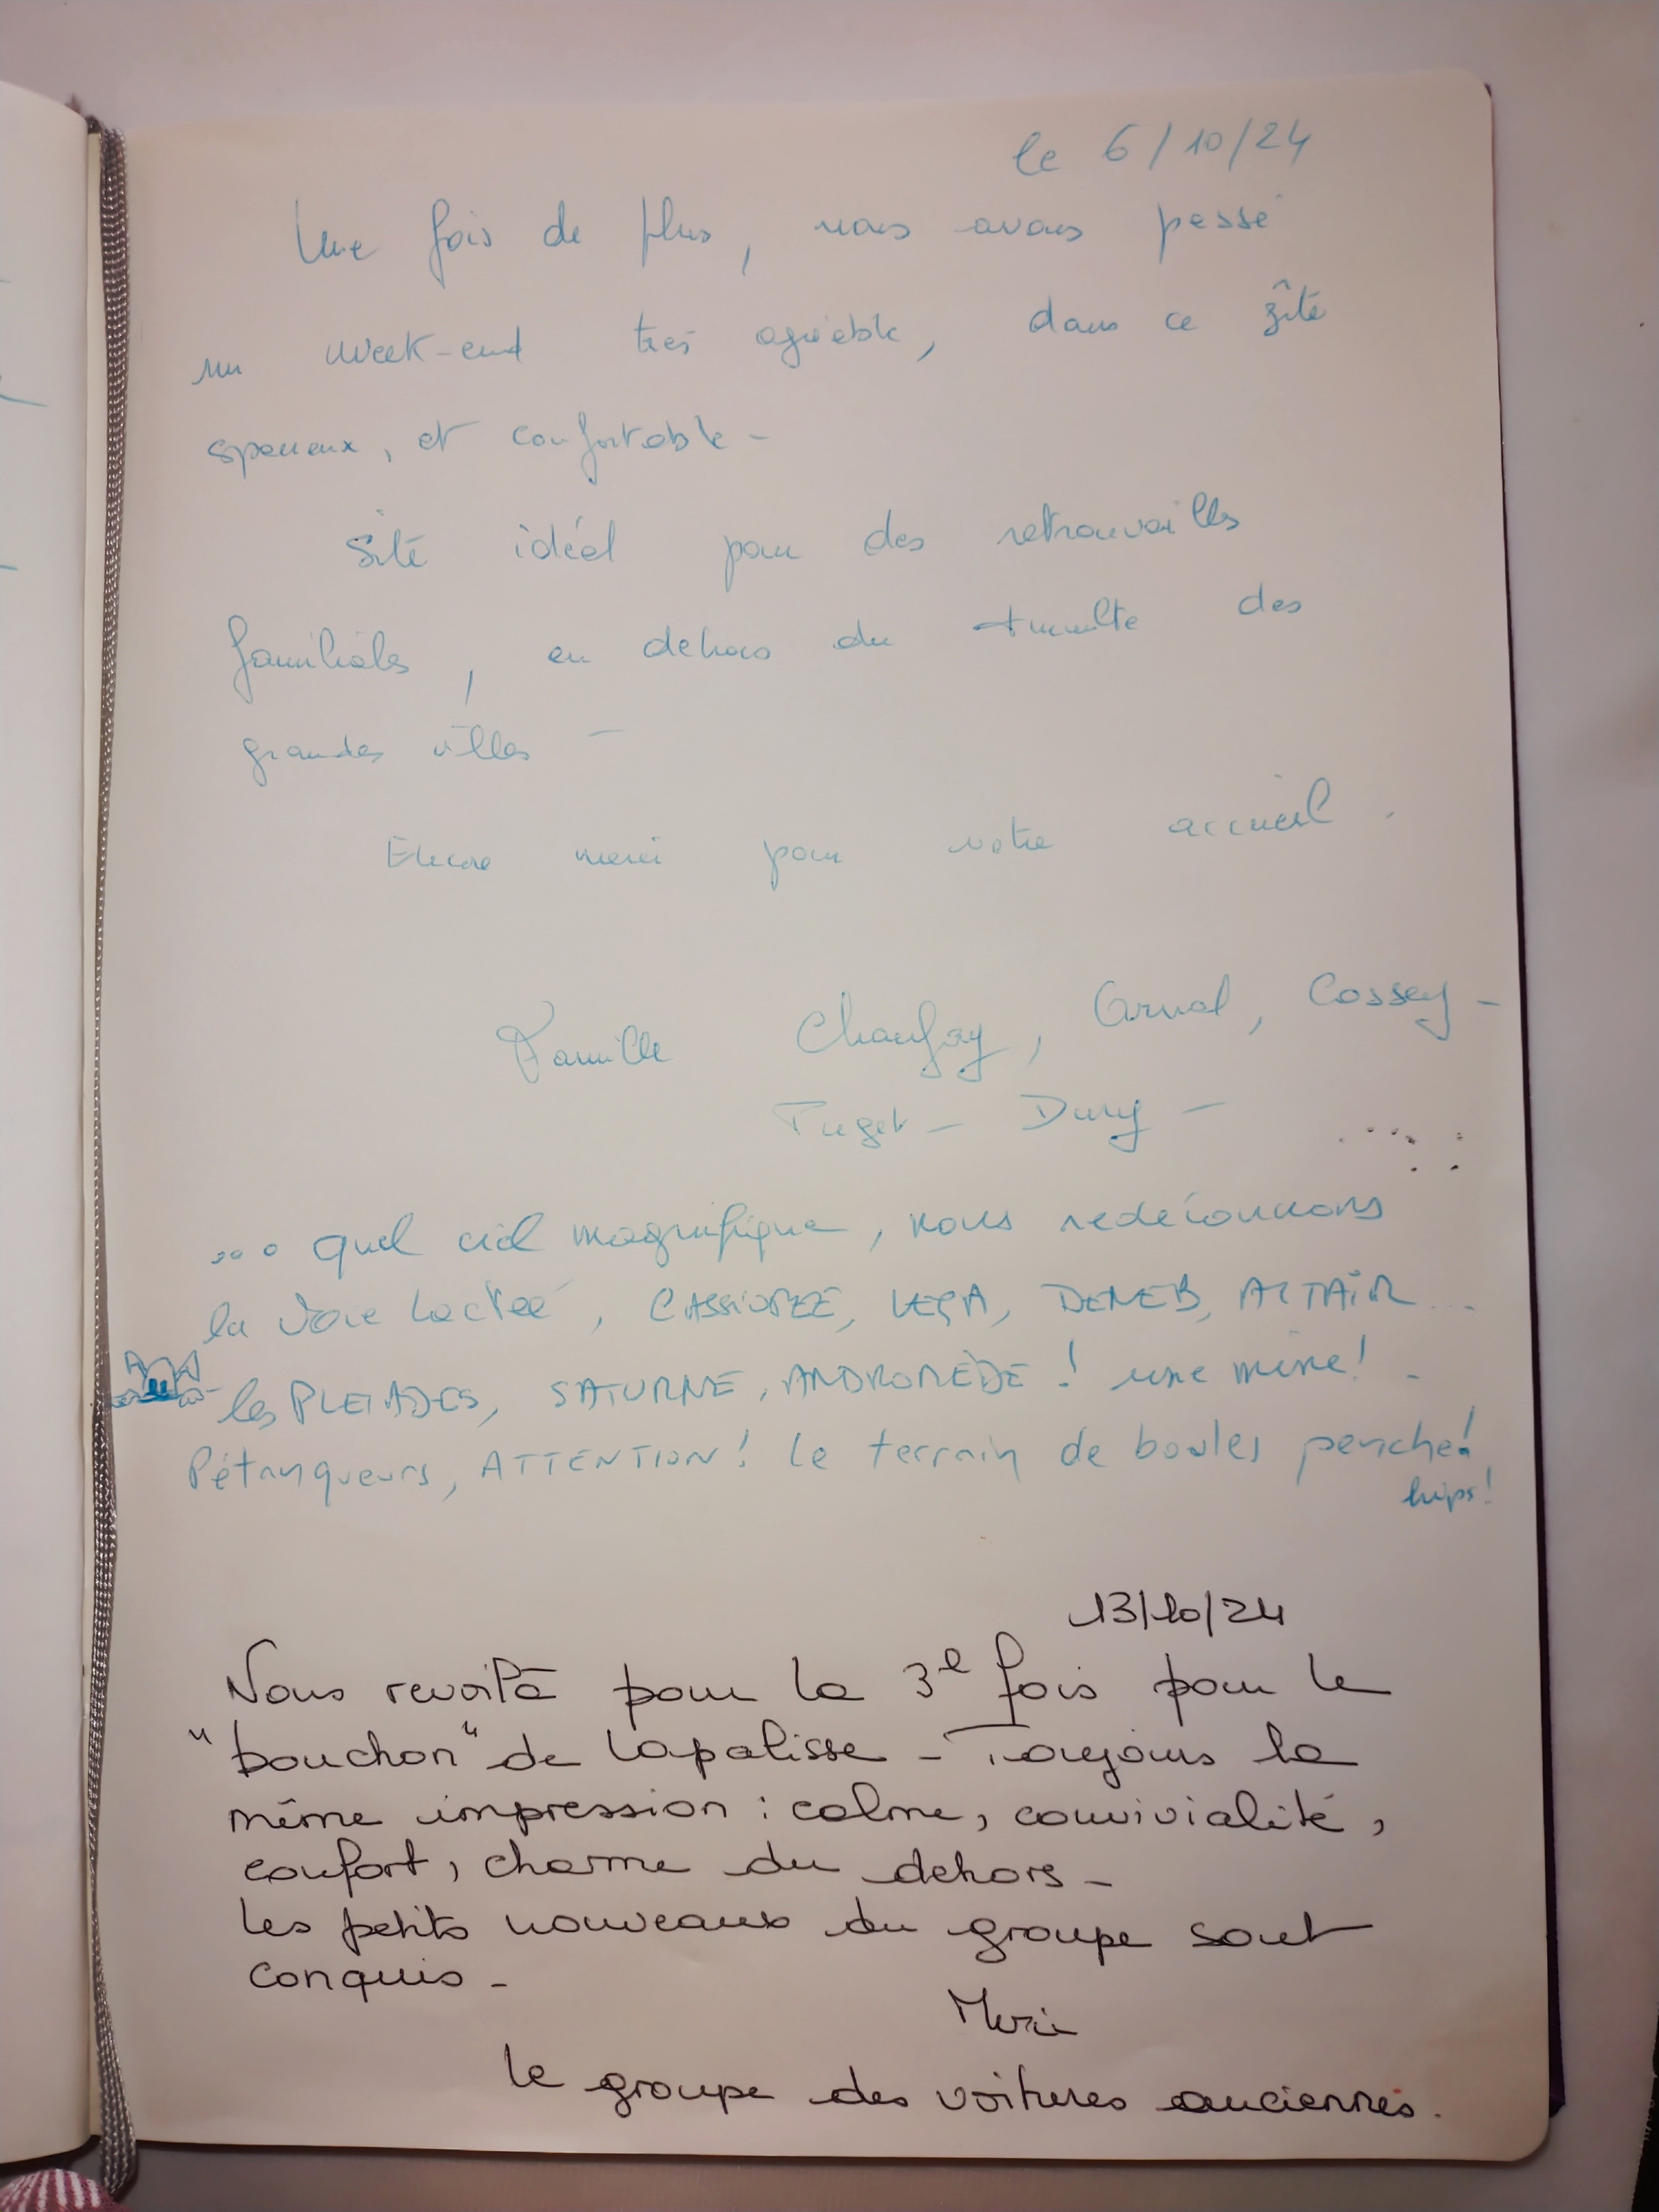 le 6/10/24
Une fois de plus, nous avons passé
un week-end très agréable, dans ce gîte
spacieux, et confortable -
Site idéal pour des retrouvailles
familiales, en dehors du tumulte des
grandes villes -
Encore merci pour votre accueil.
Famille Chaufray, Arnal, Cossey -
Puget - Dury -
... quel ciel magnifique, nous redécouvrons
la Voie Lactée, CASSIOPEE, VEGA, DENEB, ALTAÏR...
les PLEIADES, SATURNE, ANDROMÈDE! une mine! -
Pétanqueurs, ATTENTION! le terrain de boules penche!
hips!
13/10/24
Nous revoilà pour la 3e fois pour le
"bouchon" de Lapalisse - Toujours la
même impression : calme, convivialité,
confort, charme du dehors -
Les petits nouveaux du groupe sont
conquis -
Merci
Le groupe des voitures anciennes.